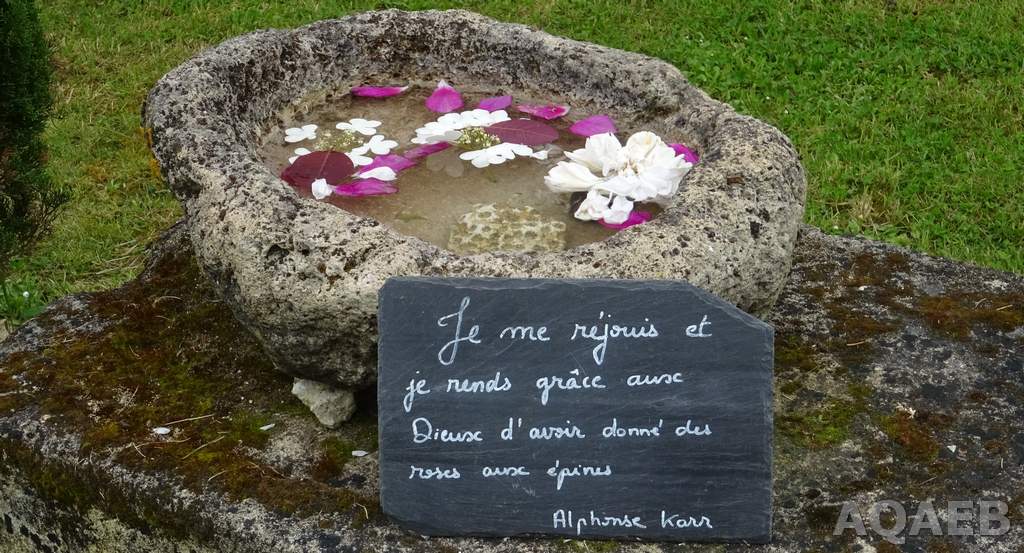 Je me réjouis et
je rends grâce aux
Dieux d'avoir donné des
roses aux épines
Alphonse Karr
AQAEB